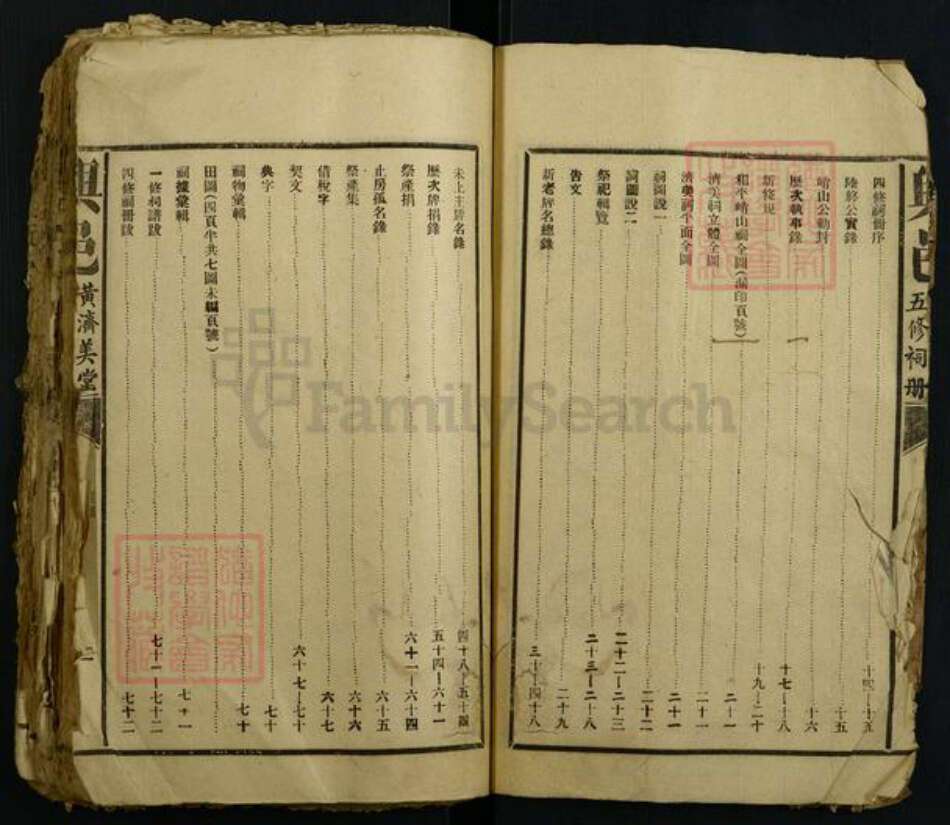 興邑 五修祠册
四修祠冊序 十四—十五
陸終公實錄 十五
峭山公勅封 十六
歷次執事錄 十七—十八
新條規 十九—二十
和平峭山祠全圖(漏印頁號) 二十一
濟美祠立體全圖 二十一
濟美祠平面全圖 二十一
祠圖說一 二十二
祠圖說二 二十二—二十三
祭祀輯覽 二十三—二十八
告文 二十九
新老牌名總錄 三十—四十八
未上主牌名錄 四十八—五十四
歷次牌捐錄 五十四—六十一
祭產捐 六十一—六十四
止房孤名錄 六十五
祭產集 六十六
借稅字 六十七
契文 六十七—七十
典字 七十
祠物彙輯 七十
田圖(四頁半共七圖未編頁號)
祠據彙輯 七十一
一修祠譜跋 七十一—七十二
四修祠冊跋 七十二
興邑 黃濟美堂
二
FamilySearch